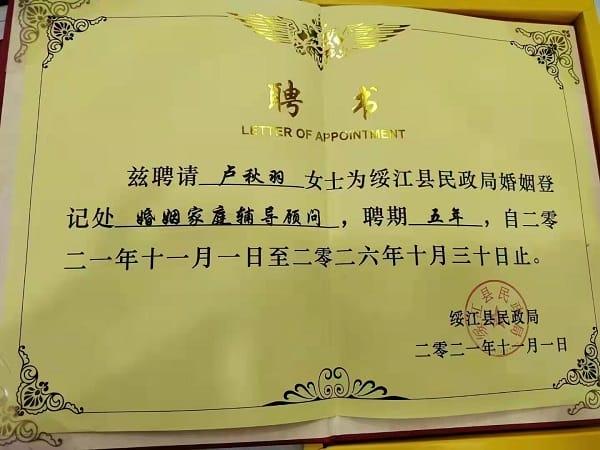 聘书
LETTER OF APPOINTMENT
兹聘请 卢秋羽 女士为绥江县民政局婚姻登
记处 婚姻家庭辅导顾问，聘期 五年，自二零
二一年十一月一日至二零二六年十月三十日止。
绥江县民政局
二零二一年十一月一日
绥江县民政局